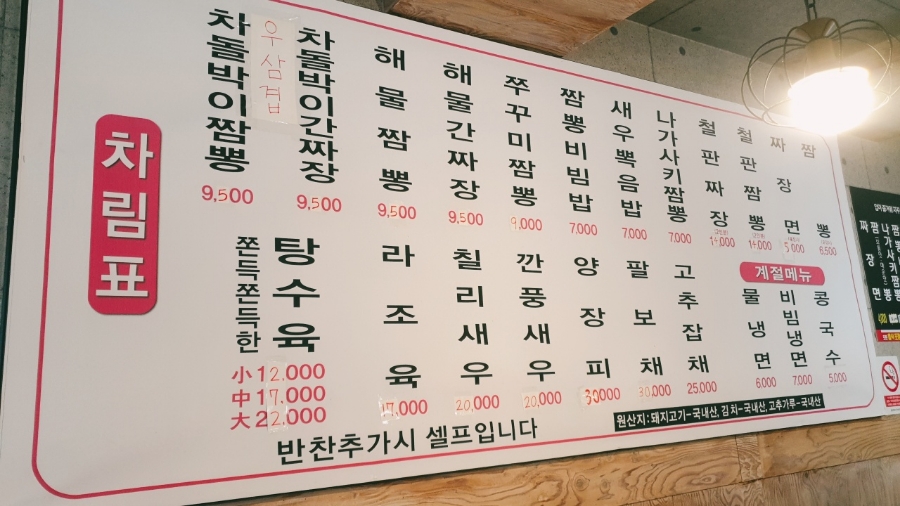 차림표
차돌박이짬뽕
9,500
우삼겹
차돌박이간짜장
9,500
해물짬뽕
9,500
해물간짜장
9,500
쭈꾸미짬뽕
9,000
짬뽕비빔밥
7,000
새우볶음밥
7,000
나가사키짬뽕
7,000
철판짜장
14,000
철판짬뽕
14,000
짜장면
5,000
짬뽕
6,500
쫀득쫀득한
탕수육
小 12,000
中 17,000
大 22,000
라조육
17,000
칠리새우
20,000
깐풍새우
20,000
양장피
30000
팔보채
30,000
고추잡채
25,000
계절메뉴
물냉면
6,000
비빔냉면
7,000
콩국수
5,000
반찬추가시 셀프입니다
원산지:돼지고기-국내산, 김치-국내산, 고추가루-국내산
짜장면
짬뽕
나가사키짬뽕